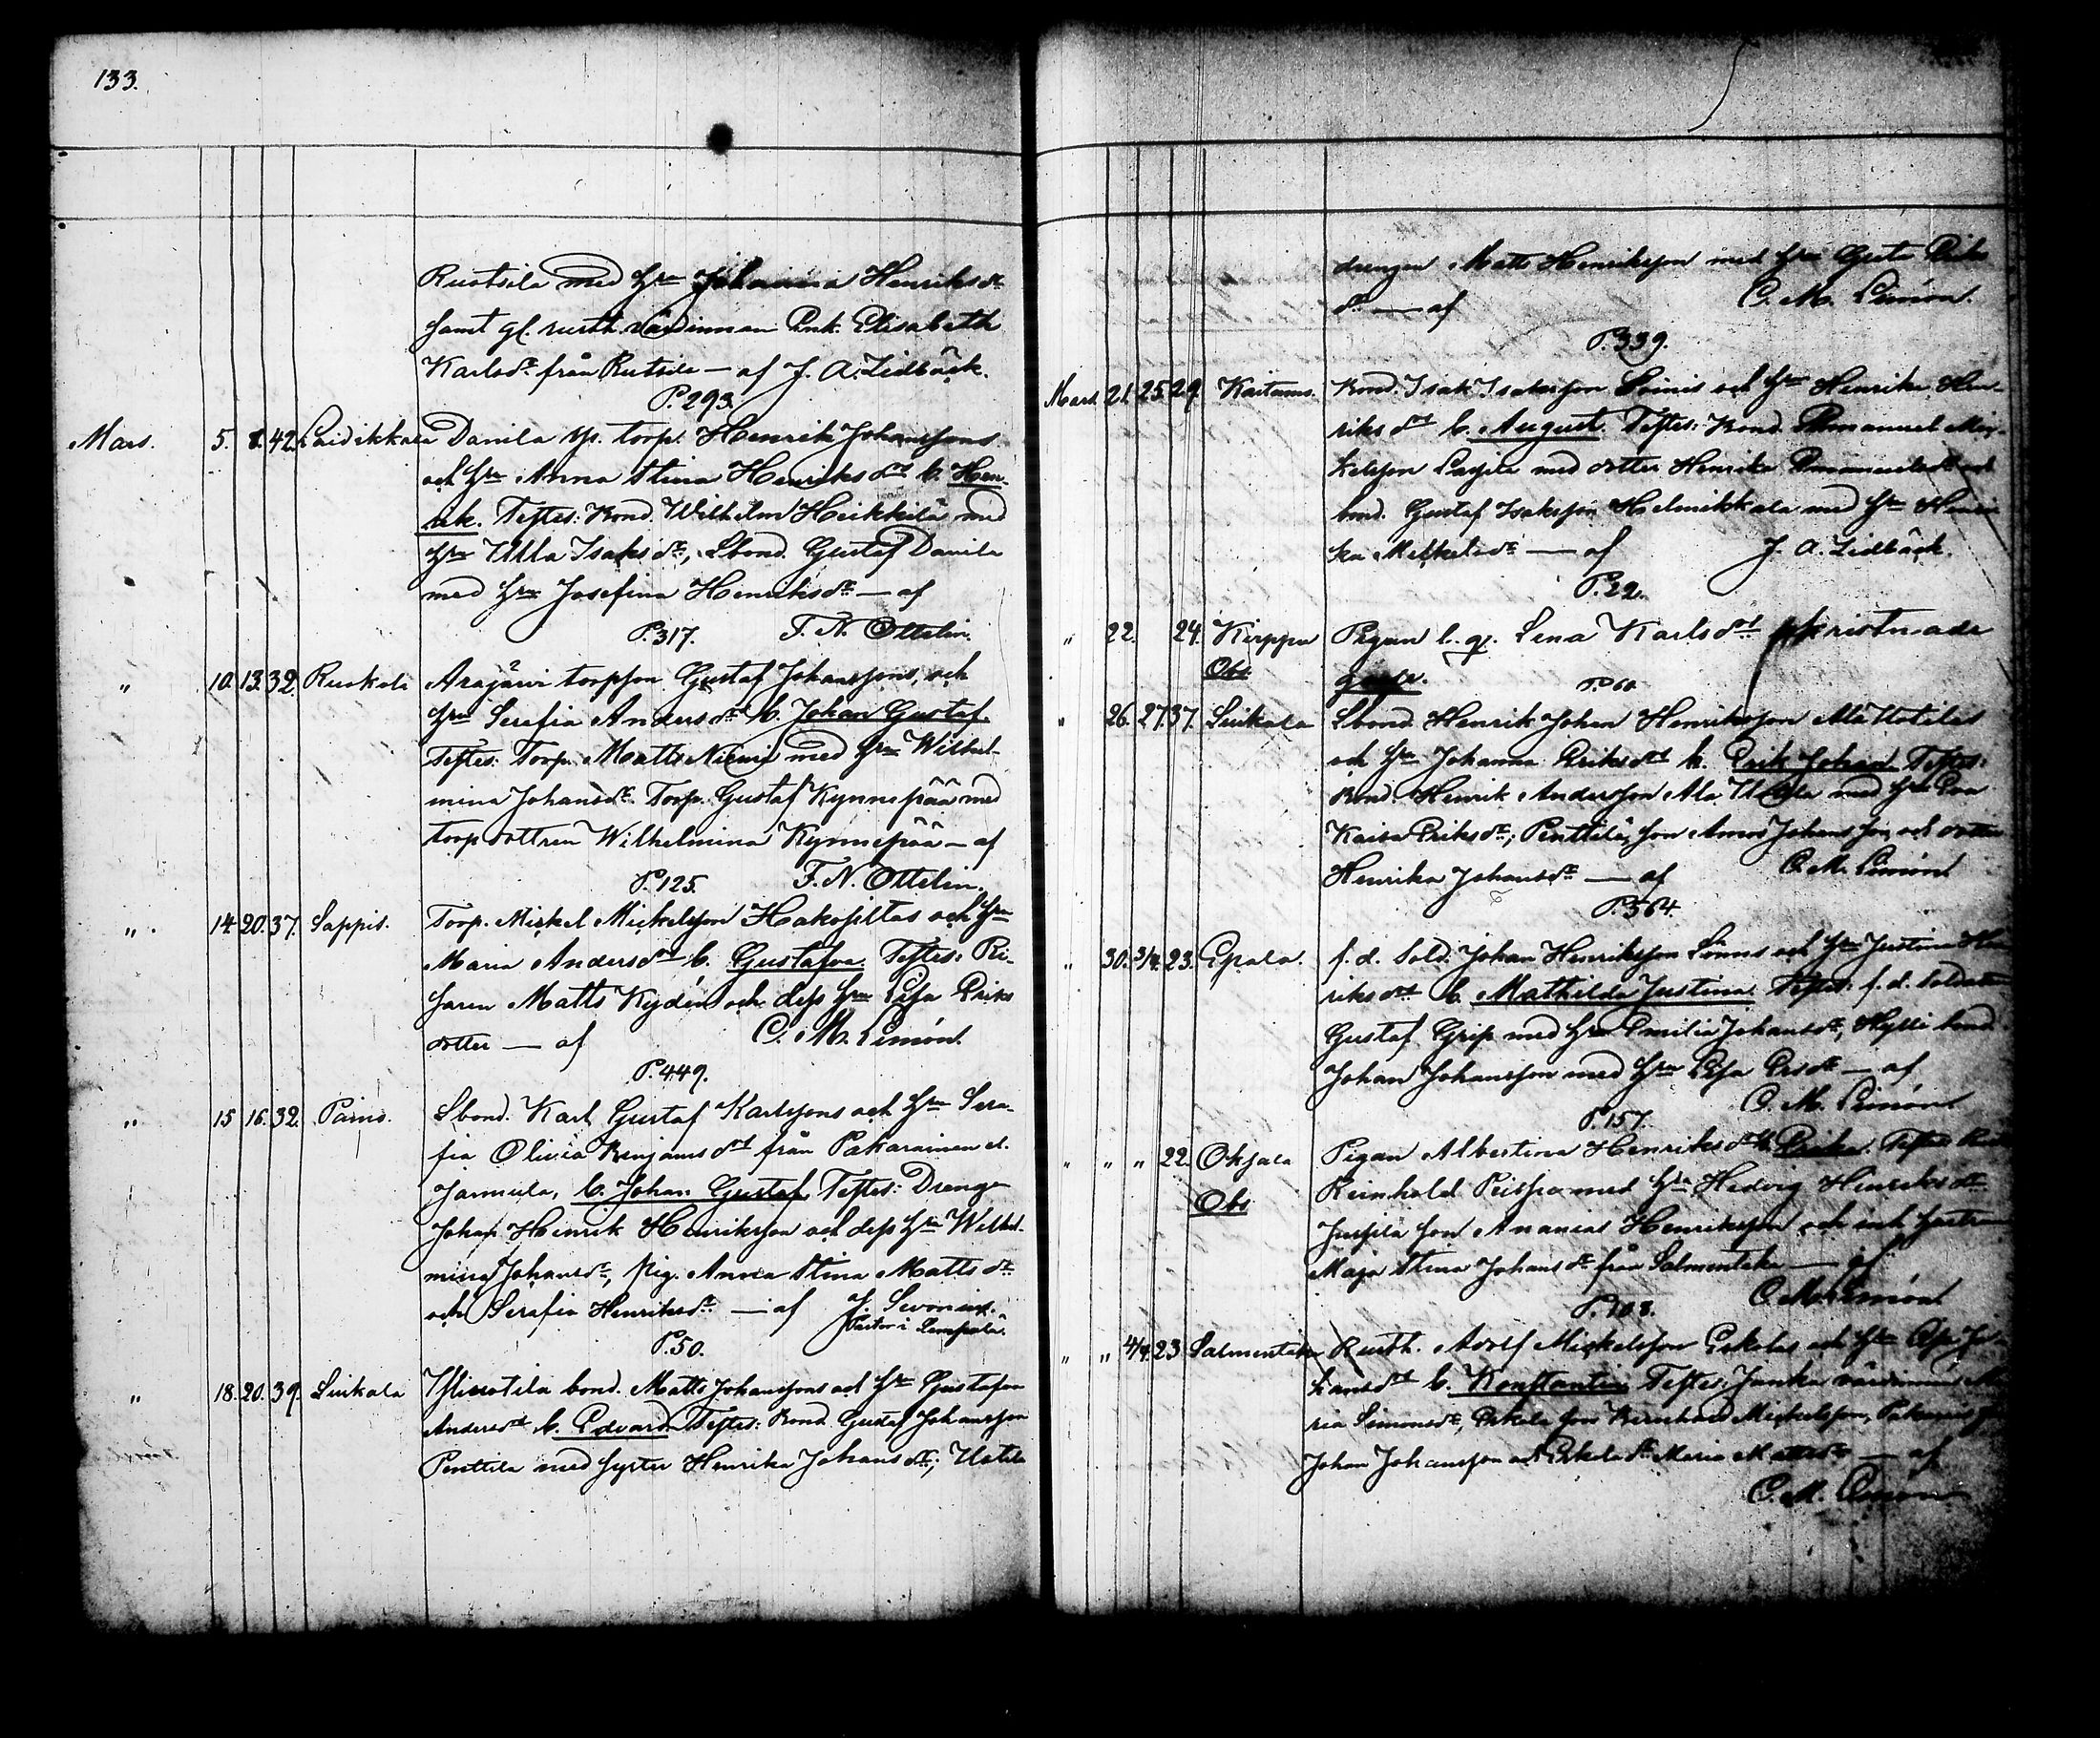 133.
Rustsila med hru Johanna Henriksdr
samt gl. rusth. värdinnan Enk. Elisabeth
Karlsdr från Rutsila — af J. A. Lidbäck.
P. 293
Mars. 5. 8. 42. Laidikkala Danila sp. torp. Henrik Johanssons
och hru Anna Stina Henriksdr b. Hen-
rik. Testes: Bond. Wilhelm Heikkilä med
hru Ulla Isaksdr, Sbond. Gustaf Danila
med hru Josefina Henriksdr — af
P. 317. F. N. Ottelin.
" 10. 13. 32. Ruokola Arajärvi torpson Gustaf Johanssons, och
hru Serafia Andersdr b. Johan Gustaf.
Testes: Torp. Matts Niemi med hru Wilhel-
mina Johansdr. Torp. Gustaf Kynnepää med
torp. dottren Wilhelmina Kynnepää — af
P. 125. F. N. Ottelin.
" 14. 20. 37. Sappis. Torp. Mickel Mickelsson Hakosiltas och hru
Maria Andersdr b. Gustafva. Testes: Ri-
saren Matts Rydén och dess hru Lisa Eriks
dotter — af C. M. Limón.
P. 449.
" 15 16. 32. Paino. Sbond. Karl Gustaf Karlssons och hru Sera-
fia Olivia Benjamsdr från Pakarainen el.
Jammila, b. Johan Gustaf. Testes: Dreng.
Johan Henrik Henriksson och dess hru Wilhel-
mina Johansdr, pig. Anna Stina Mattsdr
och Serafia Henriksdr — af J. Sevonius.
P. 50. Pastor i Lempälä.
" 18. 20. 39. Luikala Yliuotila bond. Matts Johanssons och hru Gustafva
Andersdr b. Edvard Testes: Bond. Gustaf Johansson
Penttila med syster Henrika Johansdr; Uotila
drengen Matts Henriksson med hru Greta Eriks
dr — af C. M. Limón.
P. 339.
Mars. 21. 25. 29. Kaitams. Bond. Isak Isaksson Soinis och hru Henrika Hen-
riksdr b. August. Testes: Bond. Emanuel Mic-
kelsson med dotter Henrika Emanuelsdr och
bond. Gustaf Isaksson Helmikkala med hru Henri-
ka Mickelsdr — af J. A. Lidbäck.
P. 22.
" 22. 24. Kirppu Pigan l. q. Lena Karlsdr
Obs.
P. 60
" 26. 27. 37. Luikala Sbond. Henrik Johan Henriksson Ala Uotilas
och hru Johanna Eriksdr b. Erik Johan Testes:
Bond. Henrik Andersson Ala Uotila med hru Eva
Kaisa Eriksdr; Penttilä son Amos Johansson och dotter
Henrika Johansdr — af C. M. Limón
P. 564.
" 30. 3/4. 23. Epala. f. d. Sold. Johan Henriksson Lönns och hru Justina Hen-
riksdr b. Mathilda Justina. Testes: f. d. Soldaten
Gustaf Grip med hru Emilia Johansdr, Hylli bond
Johan Johansson med hru Lisa Ersdr — af
P. 157. C. M. Limón
" " " 22. Okjala Pigan Albertina Henriksdr b. Erika. Testes:
Obs Reinhold med hru Hedvig Henriksdr
Jussila son Ananias Henriksson och
Maja Stina Johansdr från Salmentaka — af
P. 108. C. M. Limón
" " 4/4. 23 Salmentaka Rusth. Adolf Mickelsson Eskolas och hru
hansdr b. Konstantin Testes: Junka värdinnan Ma-
ria Simonsdr, Eskola son Bernhard Mickelsson,
Johan Johansson och Eskola dr Maria Mattsdr — af
C. M. Limón